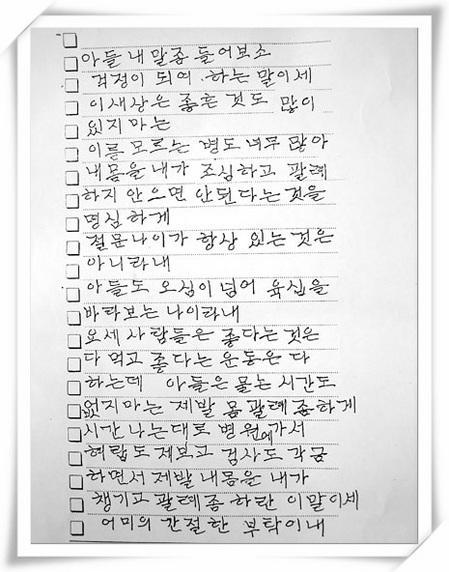 아들 내 말좀 들어보소
걱정이 되여 하는 말이세
이새상은 좋흔 것도 많이
있지마는
이름 모르는 병도 너무 많아
내몸을 내가 조심하고 괄레
하지 안으면 안된다는 것을
명심하게
절문나이가 항상 있는 것은
아니라내
아들도 오십이 넘어 육십을
바라보는 나이라내
요세 사람들은 좋다는 것은
다 먹고 좋다는 운동은 다
하는데 아들은 물논 시간도
없지마는 제발 몸 괄레좀하게
시간 나는대로 병원에가서
혀랍도 재보고 검사도 각금
하면서 제발 내몸은 내가
챙기고 괄레좀 하란 이말이세
어미의 간절한 부탁이내